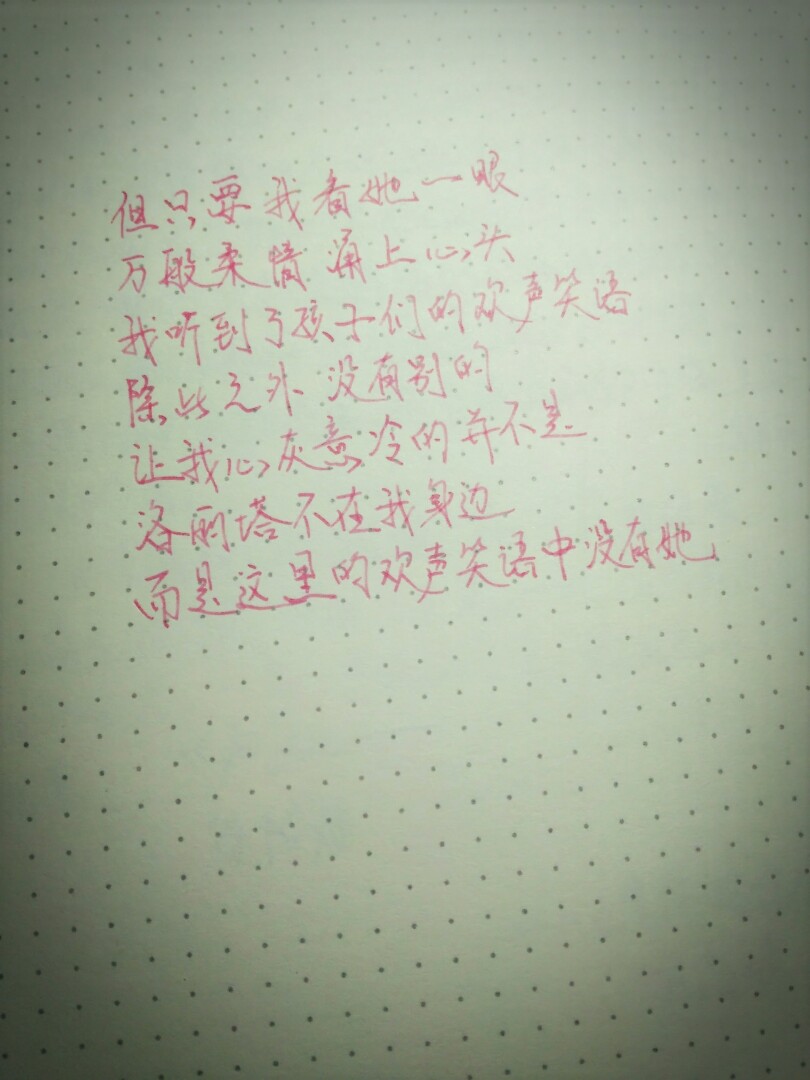 但只要我看她一眼
万般柔情涌上心头
我听到了孩子们的欢声笑语
除此之外没有别的
让我心灰意冷的并不是
洛丽塔不在我身边
而是这里的欢声笑语中没有她